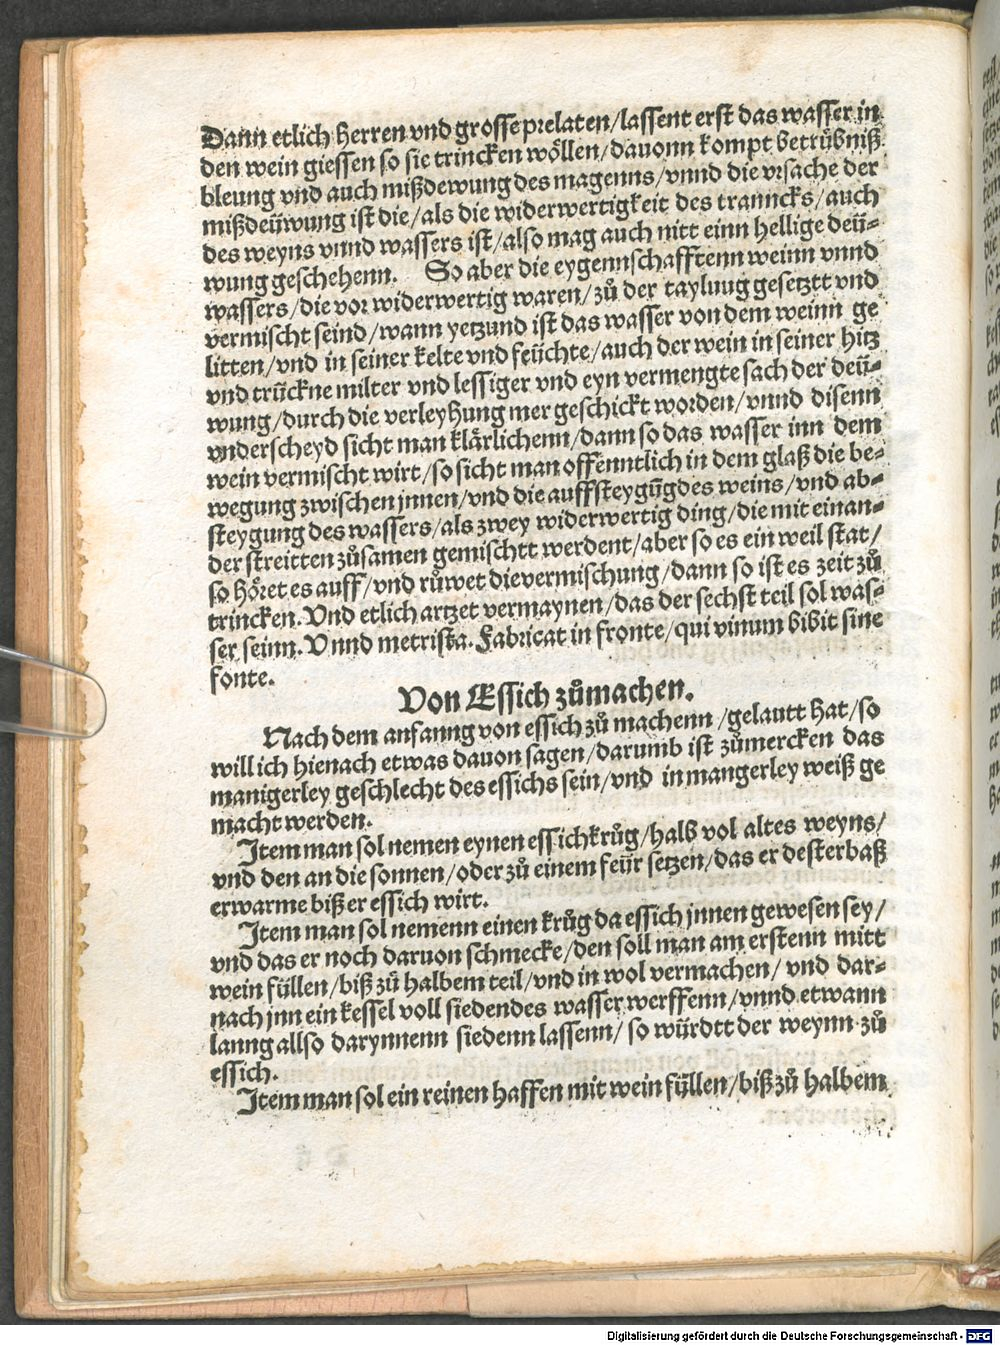 Dann etlich herren vnd grosse prelaten/lassent erst das wasser in
den wein giessen so sie trincken wöllen/dauonn kompt betrübniß
bleung vnd auch mißdewung des magenns/vnnd die vrsache der
mißdeüwung ist die/als die widerwertigkeit des tranncks/auch
des weyns vnnd wassers ist/also mag auch nitt einn hellige deü-
wung geschehenn. So aber die eygennschafftenn weinn vnnd
wassers/die vor widerwertig waren/zů der tayluug gesetztt vnd
vermischt seind/wann yetzund ist das wasser von dem weinn ge
litten/vnd in seiner kelte vnd feüchte/auch der wein in seiner hitz
vnd trückne milter vnd lessiger vnd eyn vermengte sach der deü-
wung/durch die verleyhung mer geschickt worden/vnnd disenn
vnderscheyd sicht man klärlichenn/dann so das wasser inn dem
wein vermischt wirt/so sicht man offenntlich in dem glaß die be-
wegung zwischen jnnen/vnd die auffsteygũg des weins/vnd ab-
steygung des wassers/als zwey widerwertig ding/die mit einan-
der streitten zůsamen gemischtt werdent/aber so es ein weil stat/
so höret es auff/vnd růwet die vermischung/dann so ist es zeit zů
trincken. Vnd etlich artzet vermaynen/das der sechst teil sol was-
ser seinn. Vnnd metrista. Fabricat in fronte/qui vinum bibit sine
fonte.
Von Essich zůmachen.
Nach dem anfanng von essich zů machenn/gelautt hat/so
will ich hienach etwas dauon sagen/darumb ist zůmercken das
manigerley geschlecht des essichs sein/vnd in mangerley weiß ge
macht werden.
Item man sol nemen eynen essichkrůg/halb vol altes weyns/
vnd den an die sonnen/oder zů einem feür setzen/das er desterbaß
erwarme biß er essich wirt.
Item man sol nemenn einen krůg da essich jnnen gewesen sey/
vnd das er noch daruon schmecke/den soll man am erstenn mitt
wein füllen/biß zů halbem teil/vnd in wol vermachen/vnd dar-
nach jnn ein kessel voll siedendes wasser werffenn/vnnd etwann
lanng allso darynnenn siedenn lassenn/so würdtt der weynn zů
essich.
Item man sol ein reinen haffen mit wein füllen/biß zů halbem
Digitalisierung gefördert durch die Deutsche Forschungsgemeinschaft - DFG